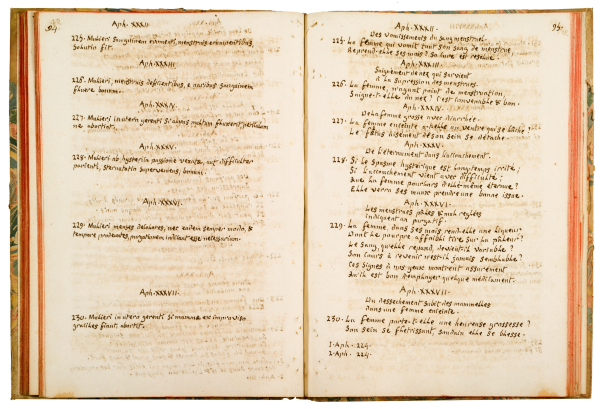 94.
Aph. XXXII.
225. Mulieri Sanguinem evomenti, menstruis erumpentibus,
solutio fit.
Aph. XXXIII
226. Mulieri, menstruis deficientibus, e naribus Sanguinem
fluere bonum.
Aph. XXXIV.
227. Mulieri in utero gerenti Si alvus multum fluxerit, periculum
ne abortiat.
Aph. XXXV.
228. Mulieri ab hysterica passione vexatæ, aut difficulter
parienti, Sternutatio Superveniens, bonum.
Aph. XXXVI.
229. Mulieri menses decolores, nec eodem semper modo, &
tempore prodeuntes, purgationem indicant esse necessariam.
Aph. XXXVII.
230. Mulieri in utero gerenti Si mammæ ex improviso
graciles fiant, abortit.
95.
Aph. XXXII.
Des vomissements du Sang menstruel.
225. La femme qui vomit tout Son Sang de menstrue,
Reprend-elle Ses mois? Sa cure est resolue.
Aph. XXXIII.
Saignement de nez qui Survient
à la Supression des menstrues.
226. La femme, n'ayant point de menstruation,
Saigne-t-elle du nez? C'est convenable & bon.
Aph. XXXIV.
De la femme grosse avec diarrhée.
227. La femme enceinte a-t-elle un ventre qui Se lâche?
Le fœtus aisément de Son Sein Se détache.
Aph. XXXV.
De l'éternument dans l'accouchement.
228. Si le Spasme hystérique est longtemps irrité;
Si l'accouchement vient avec difficulté;
Que la femme pour lors d'elle-même éternue?
Elle verra Ses maux prendre une bonne issue.
Aph. XXXVI.
Les menstrues pâles & mal reglés
indiquent un purgatif.
229. La femme, dans Ses mois rend-elle une liqueur
Dont le pourpre affaibli tire Sur la pâleur?
Le Sang, qu'elle répand, devient-il variable?
Son cours à revenir n'est-il jamais Semblable?
Ces Signes à mes yeux montrent assurément
Qu'il est bon d'employer quelque médicament.
Aph. XXXVII.
Du dessechement Subit des mammelles
dans une femme enceinte.
230. La femme porte-t-elle une heureuse grossesse?
Son Sein Se flétrissant, Soudain elle Se blesse.
1. Aph. 224.
2. Aph. 224.